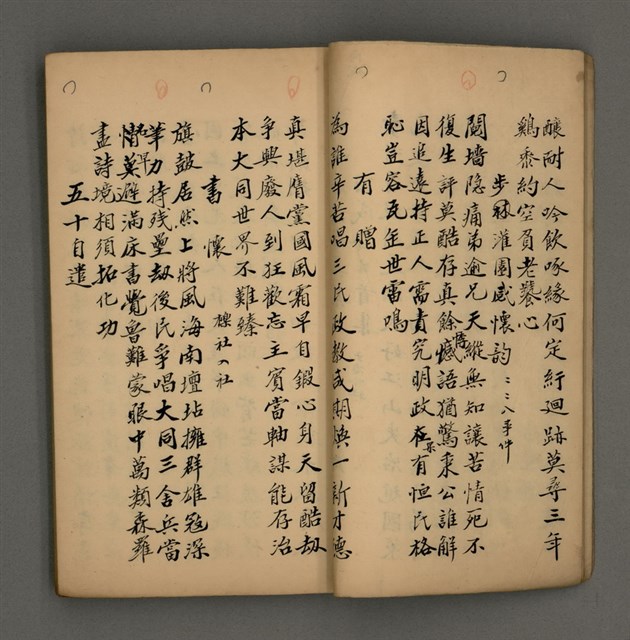 釀耐人吟飲啄緣何定紆迴跡莫尋三年
鷄黍約空負老饕心
步冰灌園感懷韵 二二八事件
鬩墻隐痛弟逾兄天縱無知讓苦情死不
復生評莫酷存真餘憾語猶驚秉公誰解
因追遠持正人需責究明政在有恒民格
恥豈容瓦缶世雷鳴
有贈
為誰辛苦唱三民政教成期煥一新才德
真堪膺黨國風霜早自鍛心身天留酷劫
爭興廢人到狂歡忘主賓當軸謀能存治
本大同世界不難臻
書懷 櫟社
旗鼓居然上將風海南壇坫擁群雄寇深
筆力持残壘劫後民爭唱大同三舍兵當
慴莫避滿床書覺魯難蒙眼中萬類森羅
盡詩境相須拓化功
五十自遣